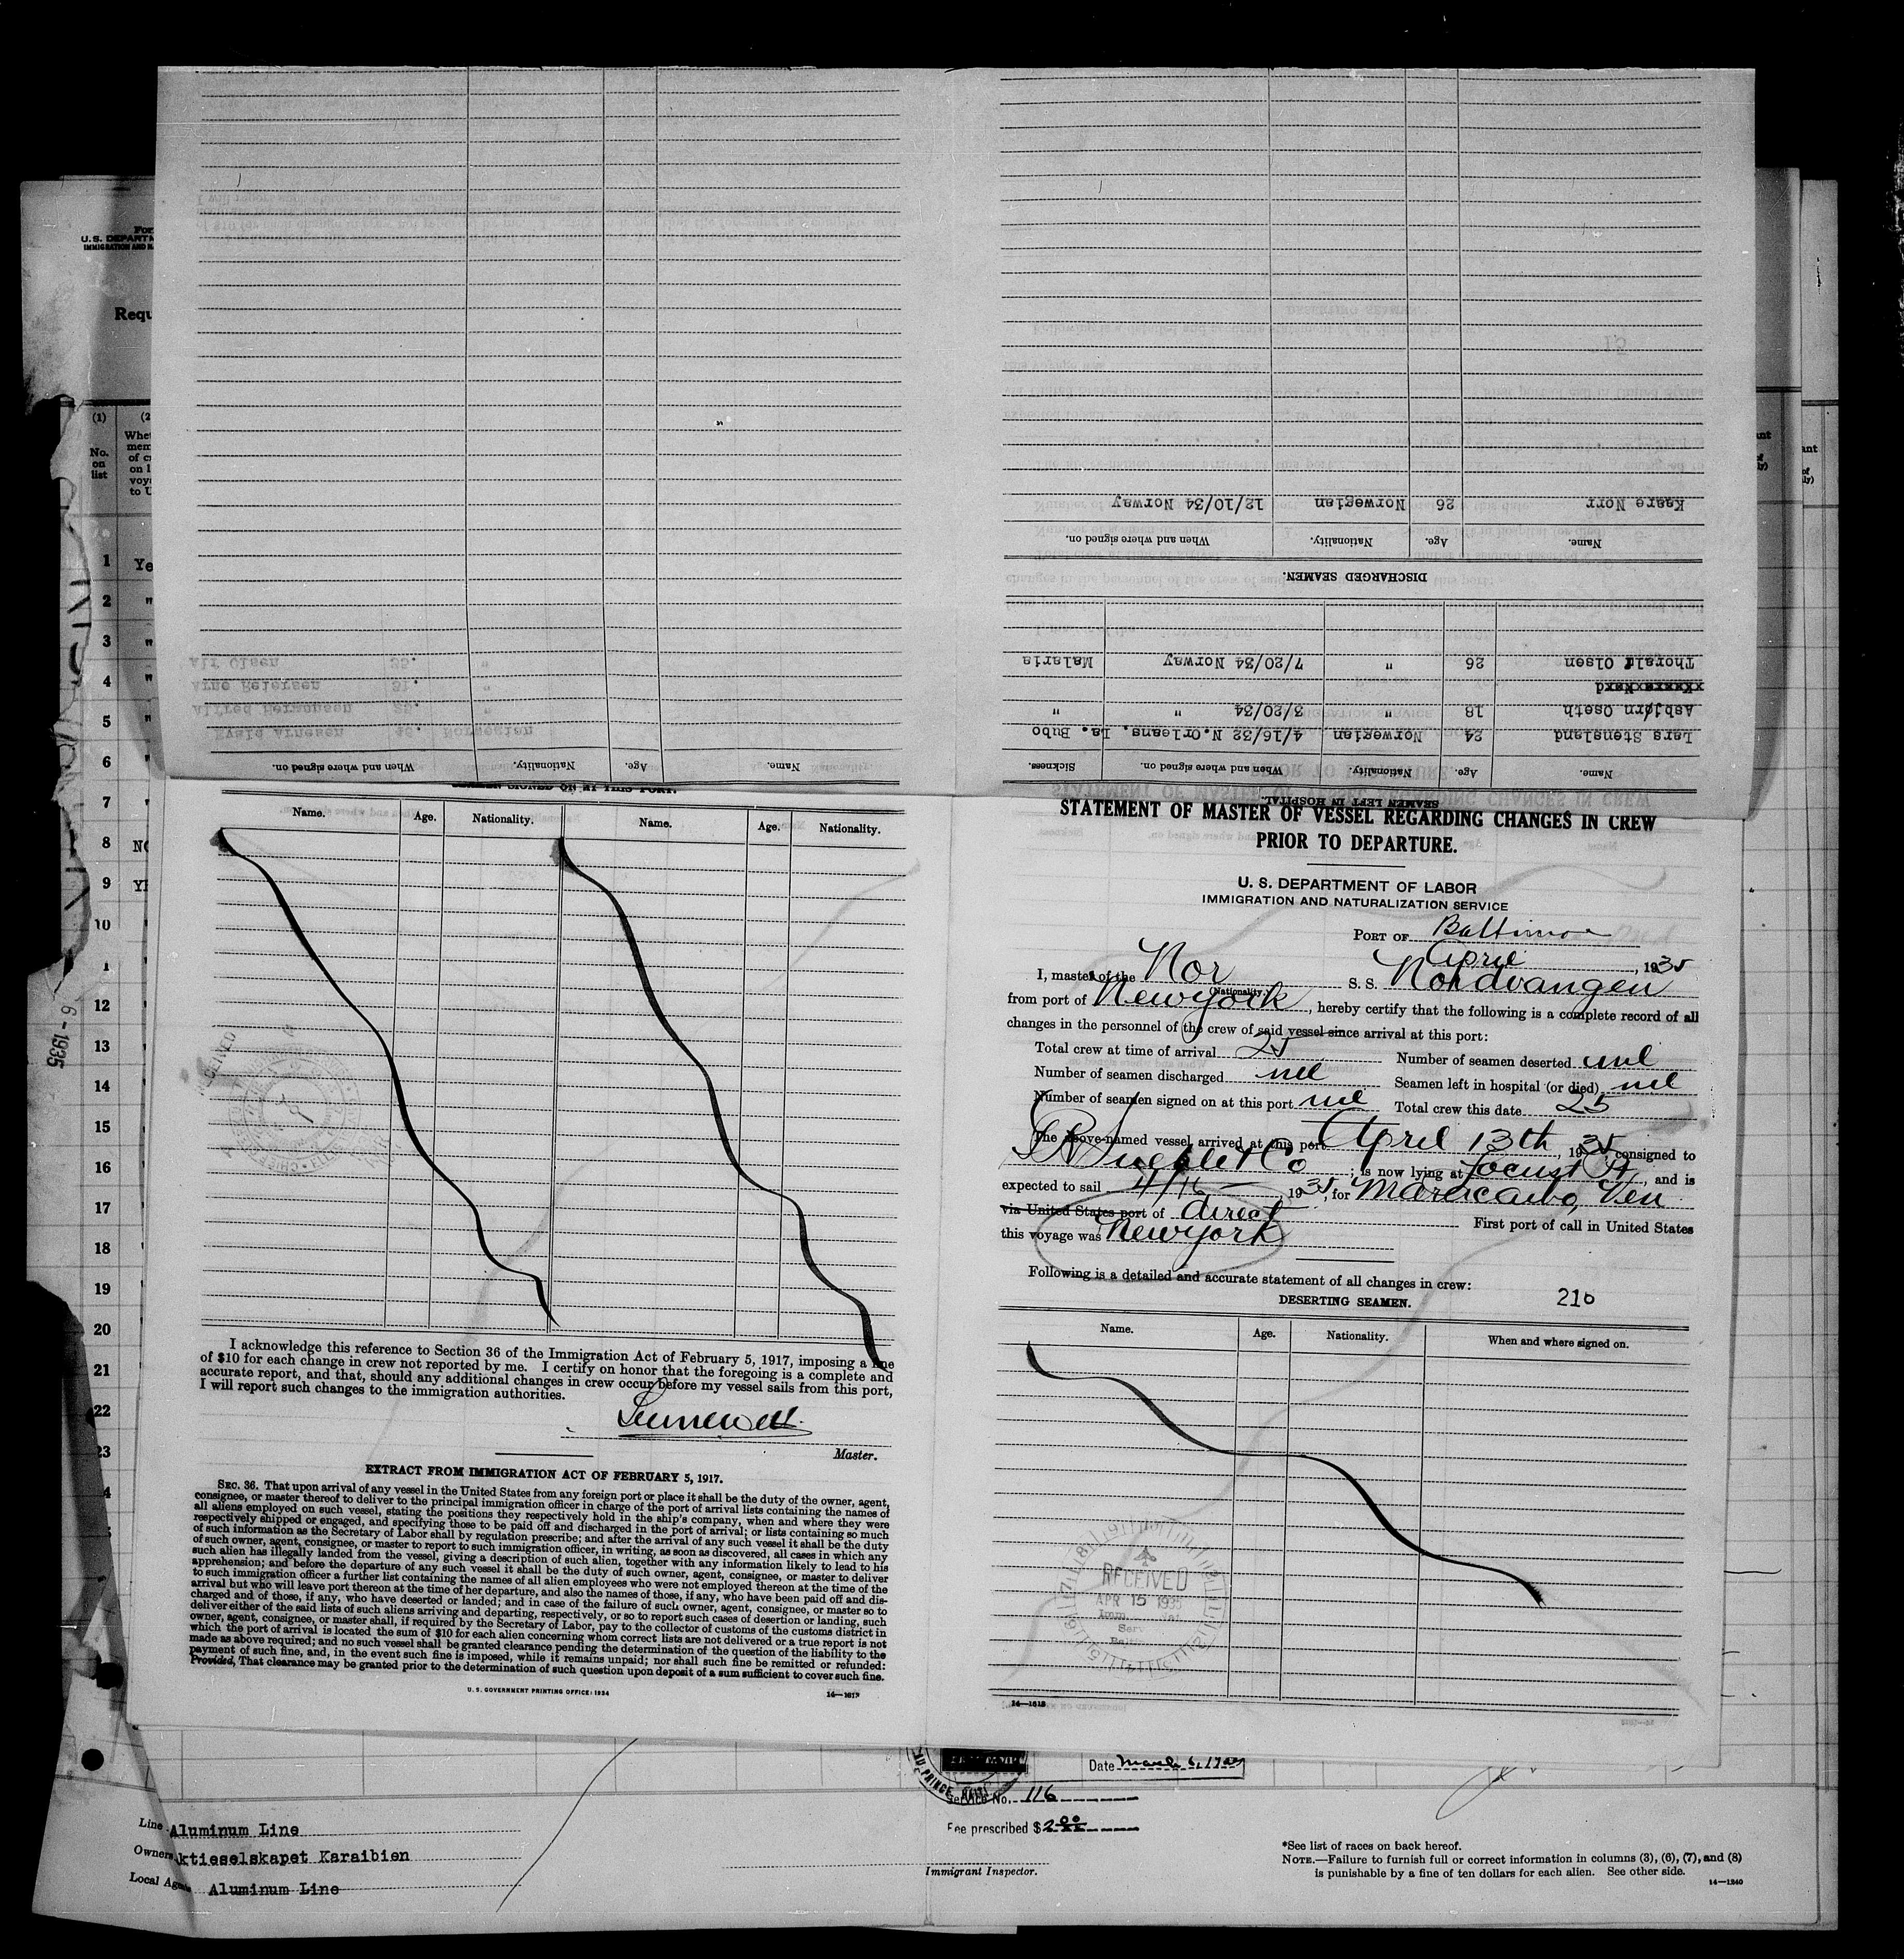 Kaare Norr 26 Norwegian 12/10/34 Norway
Name. Age. Nationality. When and where signed on.
DISCHARGED SEAMEN.
Thoralf Olsen 26 " 7/20/34 Norway Malaria
Asbjørn Oseth 18 " 3/20/34 " "
Lars Stensland 24 Norwegian 4/16/32 N.Orleans. La. Bubo
Name. Age. Nationality. When and where signed on. Sickness.
SEAMEN LEFT IN HOSPITAL.
Name. Age. Nationality. When and where signed on.
Alf Olsen 35. "
Arne Petersen 31. "
Alfred Fergonsen "
Arnesen Norwegian
U.S. DEPARTM
IMMIGRATION AND N
Requ
(1) (2
No. on list
Whet
mem
of c
on l
voya
to U
1 Ye
2 "
3 "
4 "
5 "
6 "
7
8 NO
9 YE
10
12
13
14
15
16
17
18
19
20
21
22
23
6 - 1935
SEAMEN SIGNED ON AT THIS PORT.
Name. Age. Nationality. Name. Age. Nationality.
I acknowledge this reference to Section 36 of the Immigration Act of February 5, 1917, imposing a fine
of $10 for each change in crew not reported by me. I certify on honor that the foregoing is a complete and
accurate report, and that, should any additional changes in crew occur before my vessel sails from this port,
I will report such changes to the immigration authorities.
Master.
EXTRACT FROM IMMIGRATION ACT OF FEBRUARY 5, 1917.
SEC. 36. That upon arrival of any vessel in the United States from any foreign port or place it shall be the duty of the owner, agent,
consignee, or master thereof to deliver to the principal immigration officer in charge of the port of arrival lists containing the names of
all aliens employed on such vessel, stating the positions they respectively hold in the ship's company, when and where they were
respectively shipped or engaged, and specifying those to be paid off and discharged in the port of arrival; or lists containing so much
of such information as the Secretary of Labor shall by regulation prescribe; and after the arrival of any such vessel it shall be the duty
of such owner, agent, consignee, or master to report to such immigration officer, in writing, as soon as discovered, all cases in which any
such alien has illegally landed from the vessel, giving a description of such alien, together with any information likely to lead to his
apprehension; and before the departure of any such vessel it shall be the duty of such owner, agent, consignee, or master to deliver
to such immigration officer a further list containing the names of all alien employees who were not employed thereon at the time of the
arrival but who will leave port thereon at the time of her departure, and also the names of those, if any, who have been paid off and dis-
charged and of those, if any, who have deserted or landed; and in case of the failure of such owner, agent, consignee, or master so to
deliver either of the said lists of such aliens arriving and departing, respectively, or so to report such cases of desertion or landing, such
owner, agent, consignee, or master shall, if required by the Secretary of Labor, pay to the collector of customs of the customs district in
which the port of arrival is located the sum of $10 for each alien concerning whom correct lists are not delivered or a true report is not
made as above required; and no such vessel shall be granted clearance pending the determination of the question of the liability to the
payment of such fine, and, in the event such fine is imposed, while it remains unpaid; nor shall such fine be remitted or refunded:
Provided, That clearance may be granted prior to the determination of such question upon deposit of a sum sufficient to cover such fine.
U. S. GOVERNMENT PRINTING OFFICE: 1934 14—1613
STATEMENT OF MASTER OF VESSEL REGARDING CHANGES IN CREW
PRIOR TO DEPARTURE.
U. S. DEPARTMENT OF LABOR
IMMIGRATION AND NATURALIZATION SERVICE
PORT OF Baltimore Md
April, 1935
I, master of the Nor (Nationality.) S. S. Nordvangen
from port of Newyork, hereby certify that the following is a complete record of all
changes in the personnel of the crew of said vessel since arrival at this port:
Total crew at time of arrival 25 Number of seamen deserted nil
Number of seamen discharged nil Seamen left in hospital (or died) nil
Number of seamen signed on at this port nil Total crew this date 25
The above-named vessel arrived at this port April 13th, 1935, consigned to
& Co; is now lying at Locust Pt, and is
expected to sail 4/16, 1935, for Maracaibo, Ven
via United States port of direct First port of call in United States
this voyage was Newyork
Following is a detailed and accurate statement of all changes in crew:
DESERTING SEAMEN. 210
Name. Age. Nationality. When and where signed on.
RECEIVED
APR 15 1935
Imm.
Serv
14—1613
Date March 6, 19
Service No. 116
Fee prescribed $2.00
Immigrant Inspector.
Line Aluminum Line
Owners ktieselskapet Karaibien
Local Age Aluminum Line
*See list of races on back hereof.
NOTE.—Failure to furnish full or correct information in columns (3), (6), (7), and (8)
is punishable by a fine of ten dollars for each alien. See other side.
14—1240